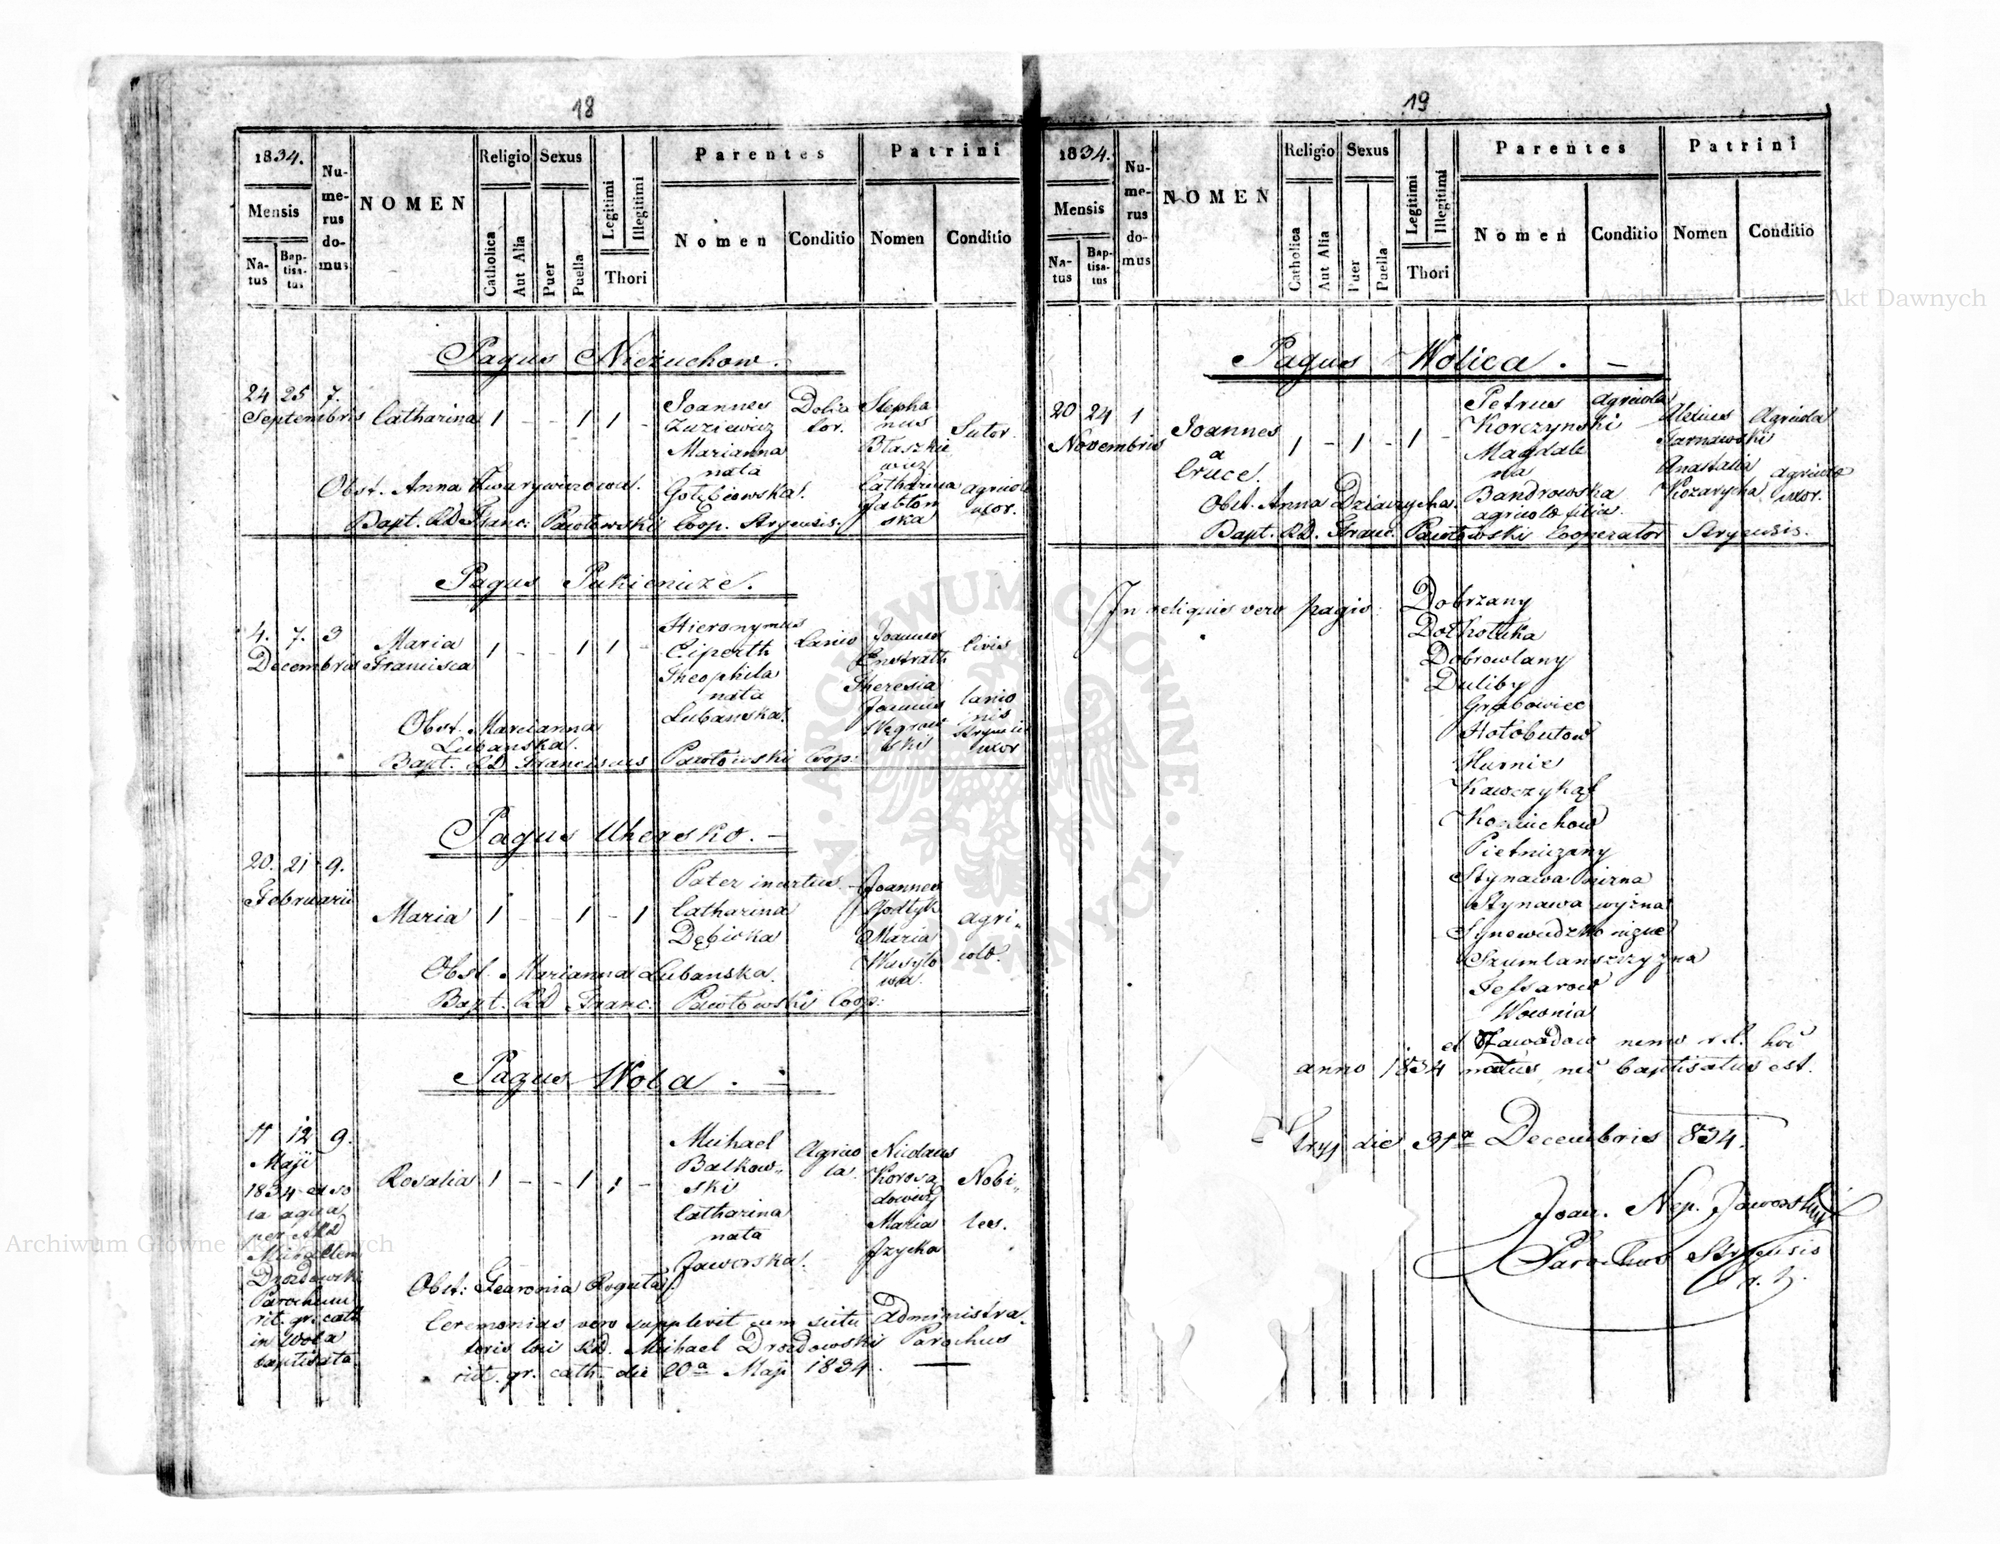 18
1834.
Mensis
Na-
tus
Bap-
tisa-
tus
Nu-
me-
rus
do-
mus
NOMEN
Religio
Catholica
Aut Alia
Sexus
Puer
Puella
Legitimi
Illegitimi
Thori
Parentes
Nomen
Conditio
Patrini
Nomen
Conditio
Pagus Nieżuchow.
24 25 7.
Septembris
Catharina 1 - - 1 1 -
Joannes
Marianna
nata
Gołębiowska.
Dolia
tor.
Stepha
nus
Błaszkie
wicz
Catharina
Jabłon
ska
Sutor.
agricolae
uxor.
Obst. Anna
Bapt. RD Franc: Pawłowski Coop. Stryensis.
Pagus Pukienicze.
4. 7. 3
Decembris
Maria
Francisca
1 - - 1 1 -
Hieronymus
Ciperth
Theophila
nata
Lubanska.
Lanio
Joannes
Theresia
Joannis
Wegrow
ski
Civis
lanio
nis
Stryensis
uxor
Obst. Marianna
Lubanska.
Bapt. RD Franciscus Pawłowski Coop:
Pagus Uhersko. -
20. 21 9.
Februarii
Maria 1 - - 1 - 1
Pater incertus.
Catharina
Dębicka
Joannes
Maria
Wasylo
wa.
agri-
colae.
Obst. Marianna Lubanska.
Bapt. RD Franc: Pawłowski Coop:
Pagus Wola. -
11 12 9.
Maji
1834 et so
la aqua
per RD
Michaelem
Drozdowski
Parochum
rit. gr. cath
in Wola
baptisata.
Rosalia 1 - - 1 1 -
Michael
Balkow-
ski
Catharina
nata
Jaworska.
Agrico
la.
Nicolaus
Maria
Nobi-
les.
Obst:
Ceremonias vero supplevit cum scitu Administra-
toris loci RD. Michael Drozdowski Parochus
rit. gr. cath. die 20a Maji 1834.
19
1834.
Mensis
Na-
tus
Bap-
tisa-
tus
Nu-
me-
rus
do-
mus
NOMEN
Religio
Catholica
Aut Alia
Sexus
Puer
Puella
Legitimi
Illegitimi
Thori
Parentes
Nomen
Conditio
Patrini
Nomen
Conditio
Pagus Wolica. -
20 24 1
Novembris
Joannes
a
Cruce.
1 - 1 - 1 -
Petrus
Korczynski
Magdale
na
Bandrowska
agricolae filia.
Agricola
Alexius
Tarnawski
Anastasia
Kozarycha
Agricola
agricolae
uxor.
Obst. Anna Dziaczycha.
Bapt. RD. Franc. Pawłowski Cooperator Stryensis.
In reliquis vero pagis:
Dobrzany
Dołhołuka
Dobrowlany
Duliby
Grabowiec
Hołobutow
Hurnie
Kawczykąt
Koniuchow
Pietniczany
Stynawa niżna
Stynawa wyżna
Synowudzko niżne
Szumlanszczyzna
Wownia
et Zawadow nemo r. l. hoc
anno 1834 natus nec baptisatus est.
Stryj die 31a Decembris 834.
Joan. Nep. Jaworski
Parochus Stryensis
Archiwum Główne Akt Dawnych
Archiwum Główne Akt Dawnych
ARCHIWUM GŁÓWNE AKT DAWNYCH